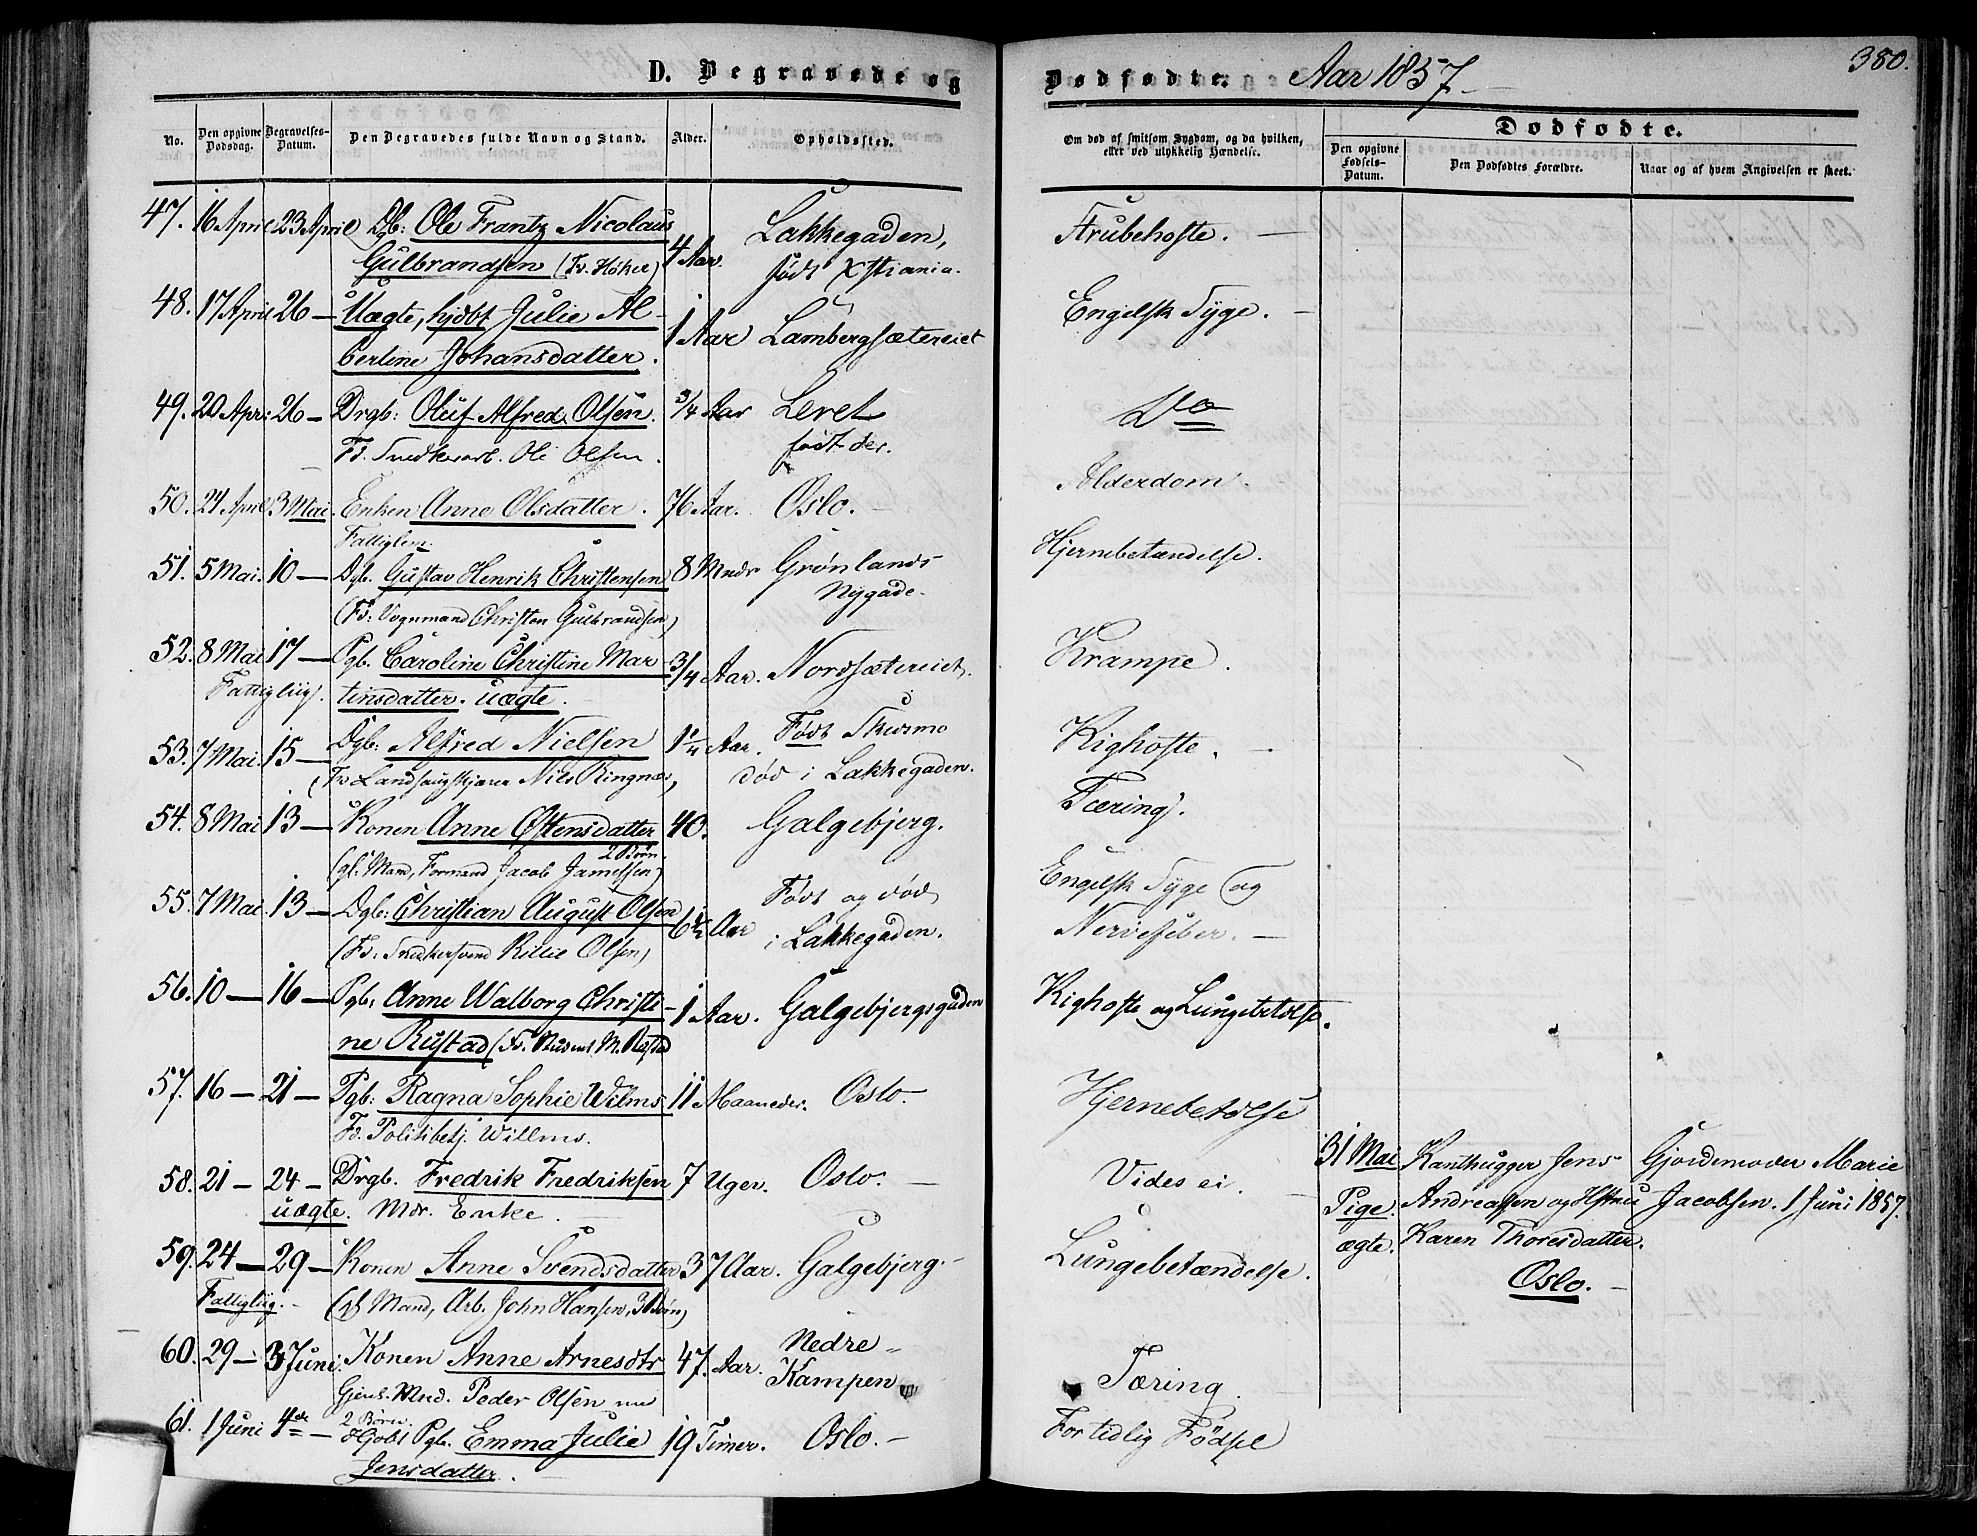 D. Begravede og
Dødfødte. Aar 1857.
380.
No.
Den opgivne Dødsdag.
Begravelses-Datum.
Den Begravedes fulde Navn og Stand.
Alder.
Opholdssted.
Om død af smitsom Sygdom, og da hvilken, eller ved ulykkelig Hændelse.
Dødfødte.
Den opgivne Fødsels-Datum.
Den Dødfødtes Forældre.
Naar og af hvem Angivelsen er skeet.
47. 16 April 23 April Dgb: Ole Frantz Nicolaus 4 Aar. Lakkegaden, Strubehoste. —
Gulbrandsen (Fr. Høker) født Xstiania.
48. 17 April 26 — Uægte, hjdbt Julie Al- 1 Aar Lambergsætereiet Engelsk Syge. —
bertine Johansdatter.
49. 20 Apri 26 — Drgb: Oluf Alfred Olsen. 3/4 Aar Leret Do
Fd. Snedkerarb. Ole Olsen. født der.
50. 21 April 3 Mai. Enken Anne Olsdatter. 76 Aar. Oslo. Alderdom.
Fattiglem.
51. 5 Mai. 10 — Dgb. Gustav Henrik Christensen 8 Mndr Grønlands Hjernebetændelse.
(Fd: Vognmand Christen Gulbrandsen) Nygade.
52. 8 Mai 17 — Pgb. Caroline Christine Mar- 3/4 Aar. Nordsætereiet. Krampe.
Fattigliig. tinsdatter. uægte.
53. 7 Mai. 15 — Dgb: Alfred Nielsen 1 1/4 Aar. Født Skurmo Kighoste. —
(Fr Landhaugskjører Nils Ringnæs) død i Lakkegaden.
54. 8 Mai 13 — Konen Anne Østensdatter 40. Galgebjerg. Tæring.
2 Børn.
(gl. Mand, Formand Jacob Jamessen)
55. 7 Mai. 13 — Dgb: Christian August Olsen 6 1/2 Aar Født og død Engelsk Syge og
(Fd: Snedkersvend Killil Olsen) i Lakkegaden. Nervefeber. —
56. 10 — 16 — Pgb: Anne Walborg Christi- 1 Aar. Galgebjergsgaden Kighoste og Lungebetdlse.
ne Rustad (Fr. M. Rustad
57. 16 — 21 — Pgb: Ragna Sophie Wilms 11 Maaneder. Oslo. Hjernebetdlse
Fd. Politibetj. Willms.
58. 21 — 24 — Drgb. Fredrik Fredriksen 7 Uger. Oslo. — Vides ei. —
uægte. Mdr. Enke.
31 Mai Kanthugger Jens Gjordemoder Marie
Pige. Andreassen og Hstru Jacobsen. 1 Juni 1857.
ægte. Karen Thoresdatter.
Oslo. —
59. 24 — 29 — Konen Anne Svendsdatter 37 Aar. Galgebjerg. Lungebetændelse.
Fattigliig. — (gl Mand, Arb. John Hansen, 3 Børn)
60. 29 — 3 Juni. Konen Anne Arnesdtr 47. Aar. Nedre Kampen Tæring.
Gjenl. Mnd. Peder Olsen nu
2 Børn.
61. 1 Juni 4de — Hjdbt Pgb. Emma Julie 19 Timer. Oslo. — For tidlig Fødsel
Jensdatter.